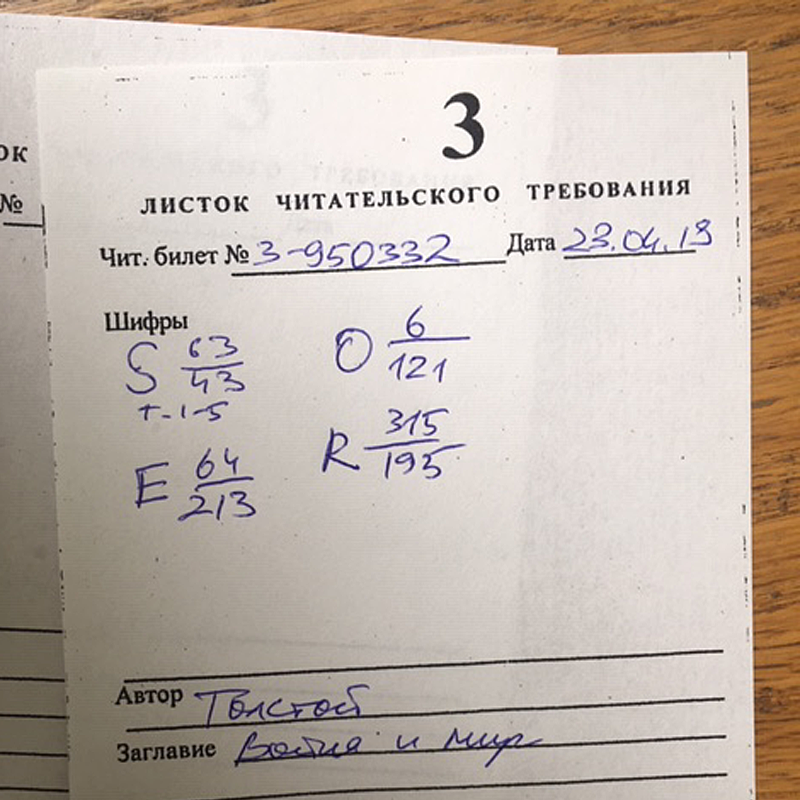 ОК
№
3
ЛИСТОК ЧИТАТЕЛЬСКОГО ТРЕБОВАНИЯ
Чит. билет № 3-950332 Дата 23.04.19
Шифры
S 63/43 O 6/121
т-1-5
E 64/213 R 315/195
Автор Толстой
Заглавие Война и мир